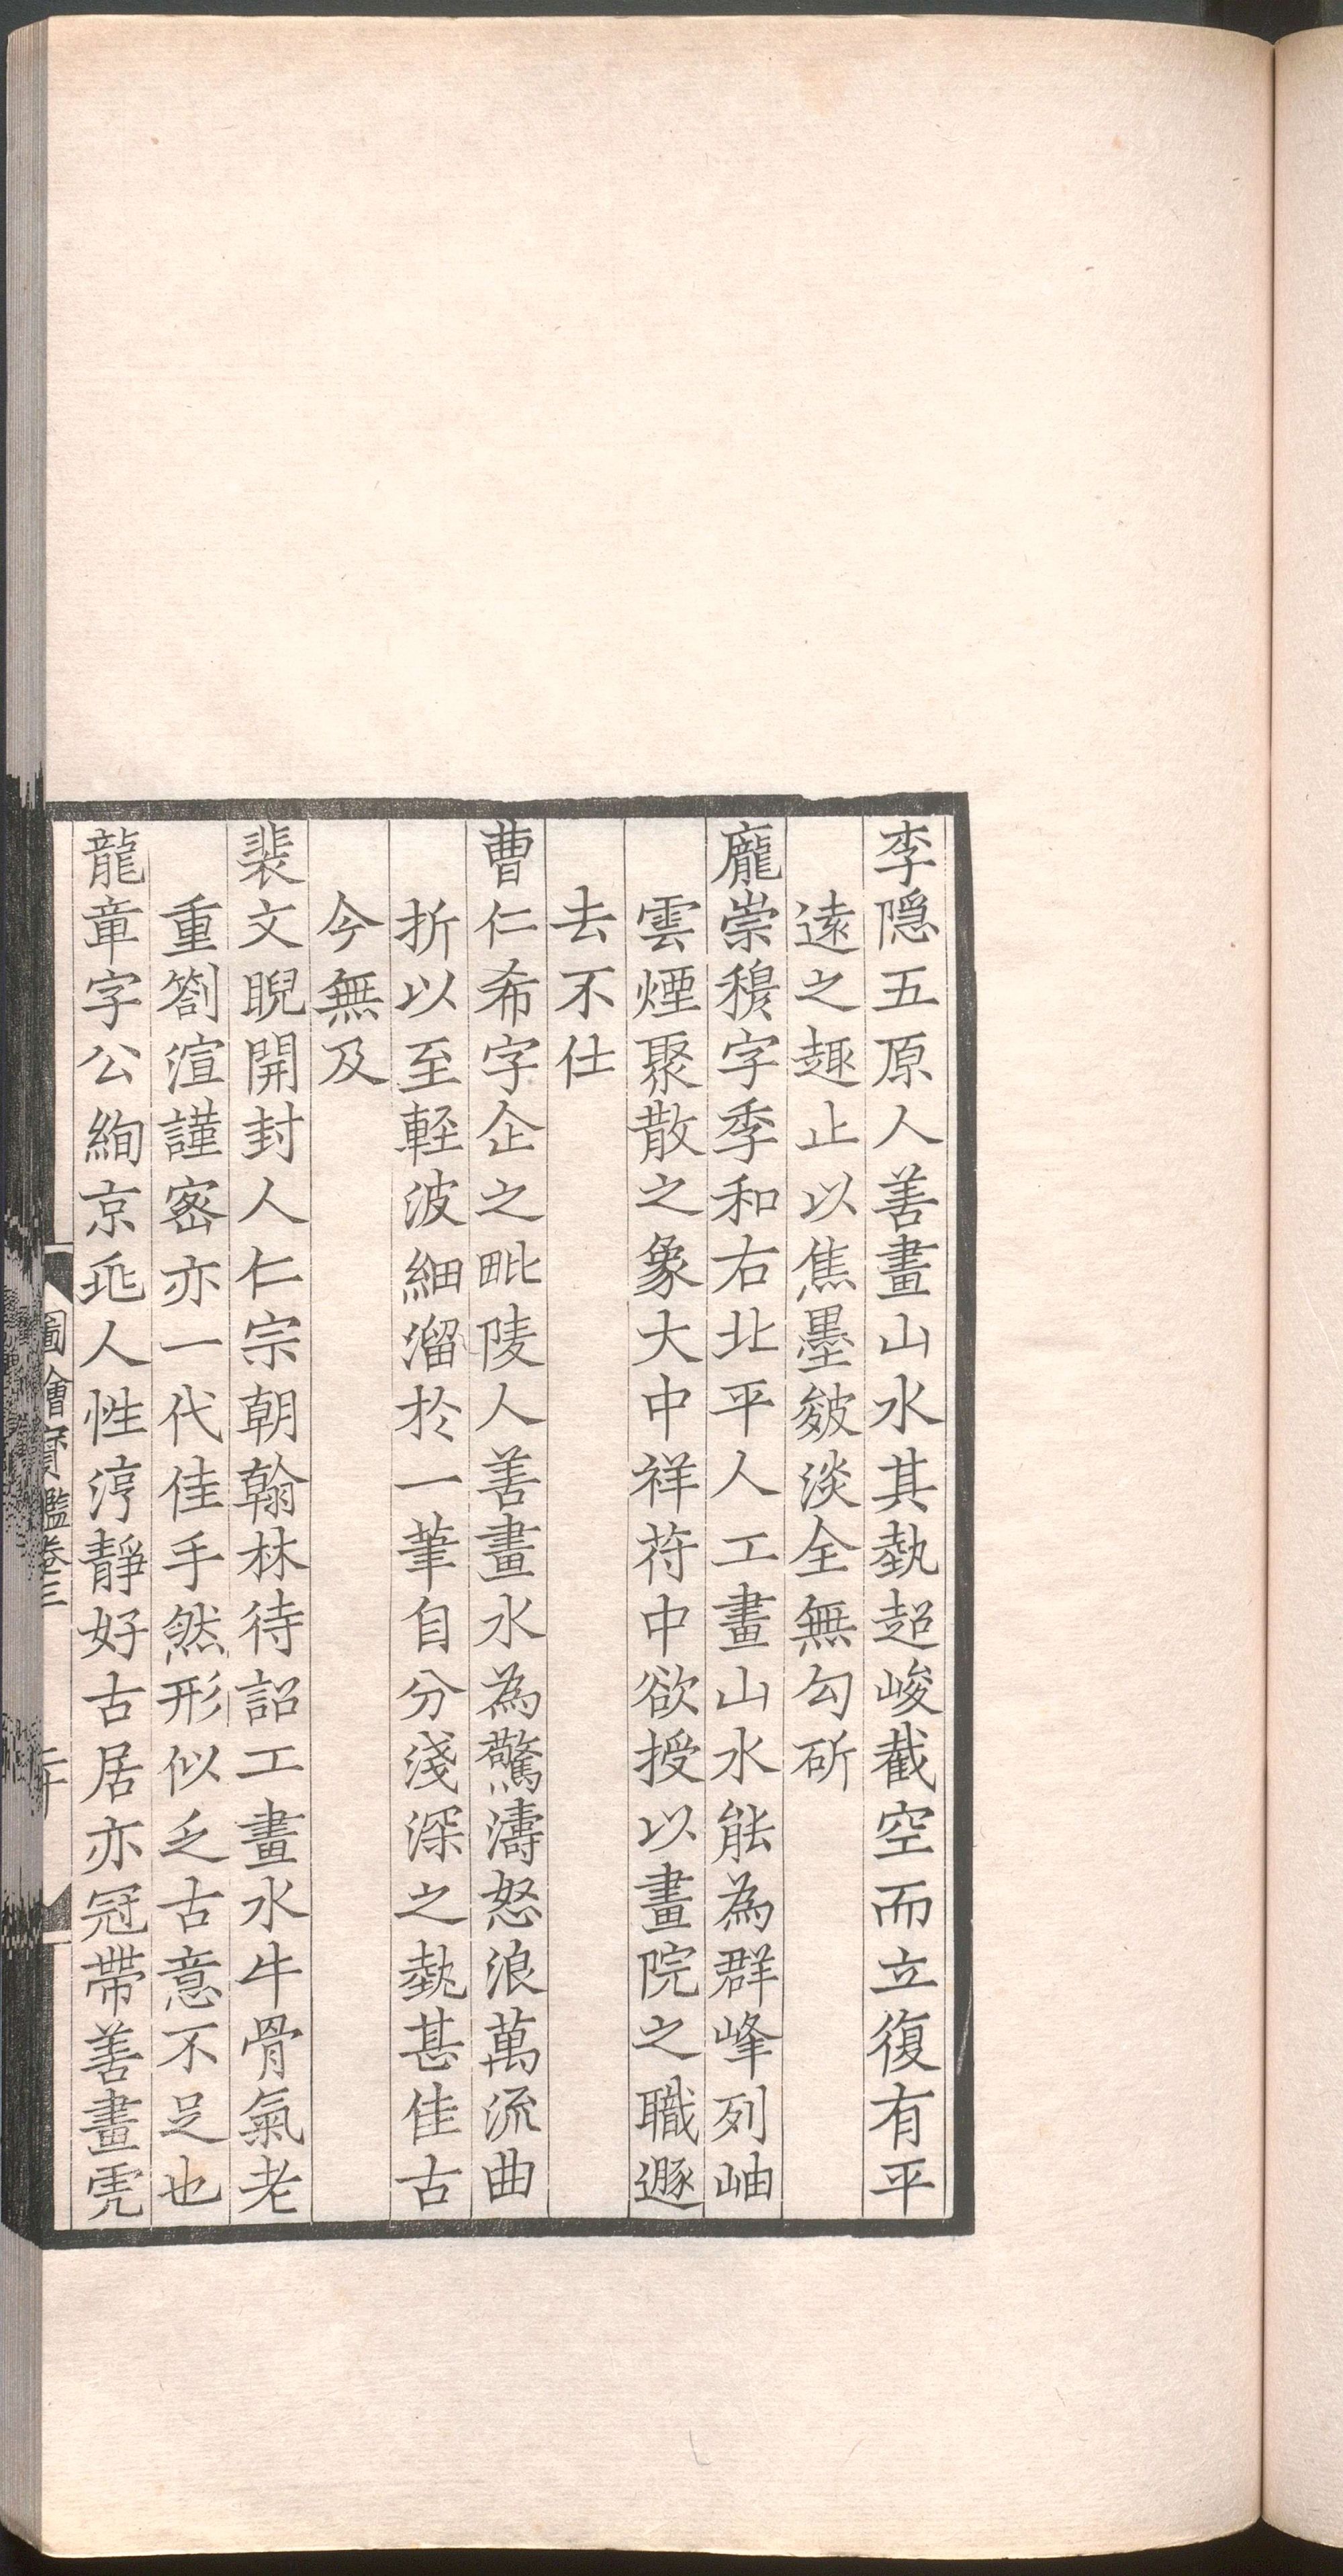 李隠五原人善畫山水其埶超峻截空而立復有平
遠之趣止以焦墨皴淡全無勾斫
龐崇穆字季和右北平人工畫山水能為群峰列岫
雲煙聚散之象大中祥符中欲授以畫院之職遯
去不仕
曹仁希字企之毗陵人善畫水為驚濤怒浪萬流曲
折以至輕波細溜於一筆自分淺深之埶甚佳古
今無及
裴文睍開封人仁宗朝翰林待詔工畫水牛骨氣老
重劄渲謹密亦一代佳手然形似乏古意不足也
龍章字公絢京兆人性淳靜好古居亦冠帶善畫虎
圖繪寶鑑卷三